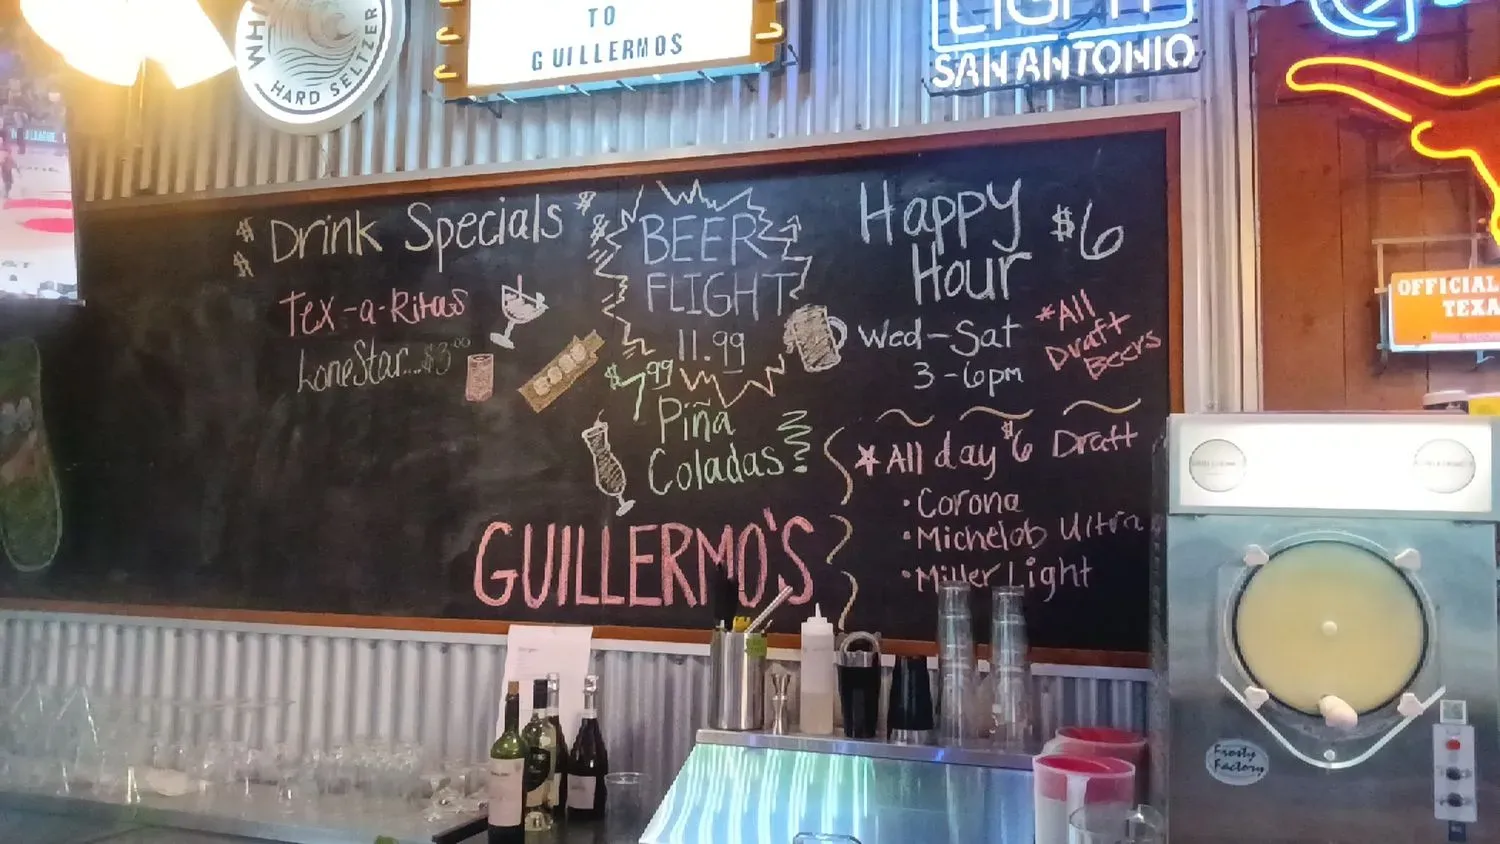 WH
HARD SELTZER
TO
GUILLERMOS
LIGHT
SAN ANTONIO
OFFICIAL
TEXA
$ Drink Specials $
$
Tex-a-Ritas
LoneStar....$3.00
BEER
FLIGHT
11.99
$7.99
Piña
Coladas
GUILLERMO'S
Happy
Hour
$6
Wed-Sat
3-6pm
*All
Draft
Beers
*All day $6 Draft
• Corona
• Michelob Ultra
• Miller Light
Frosty
Factory